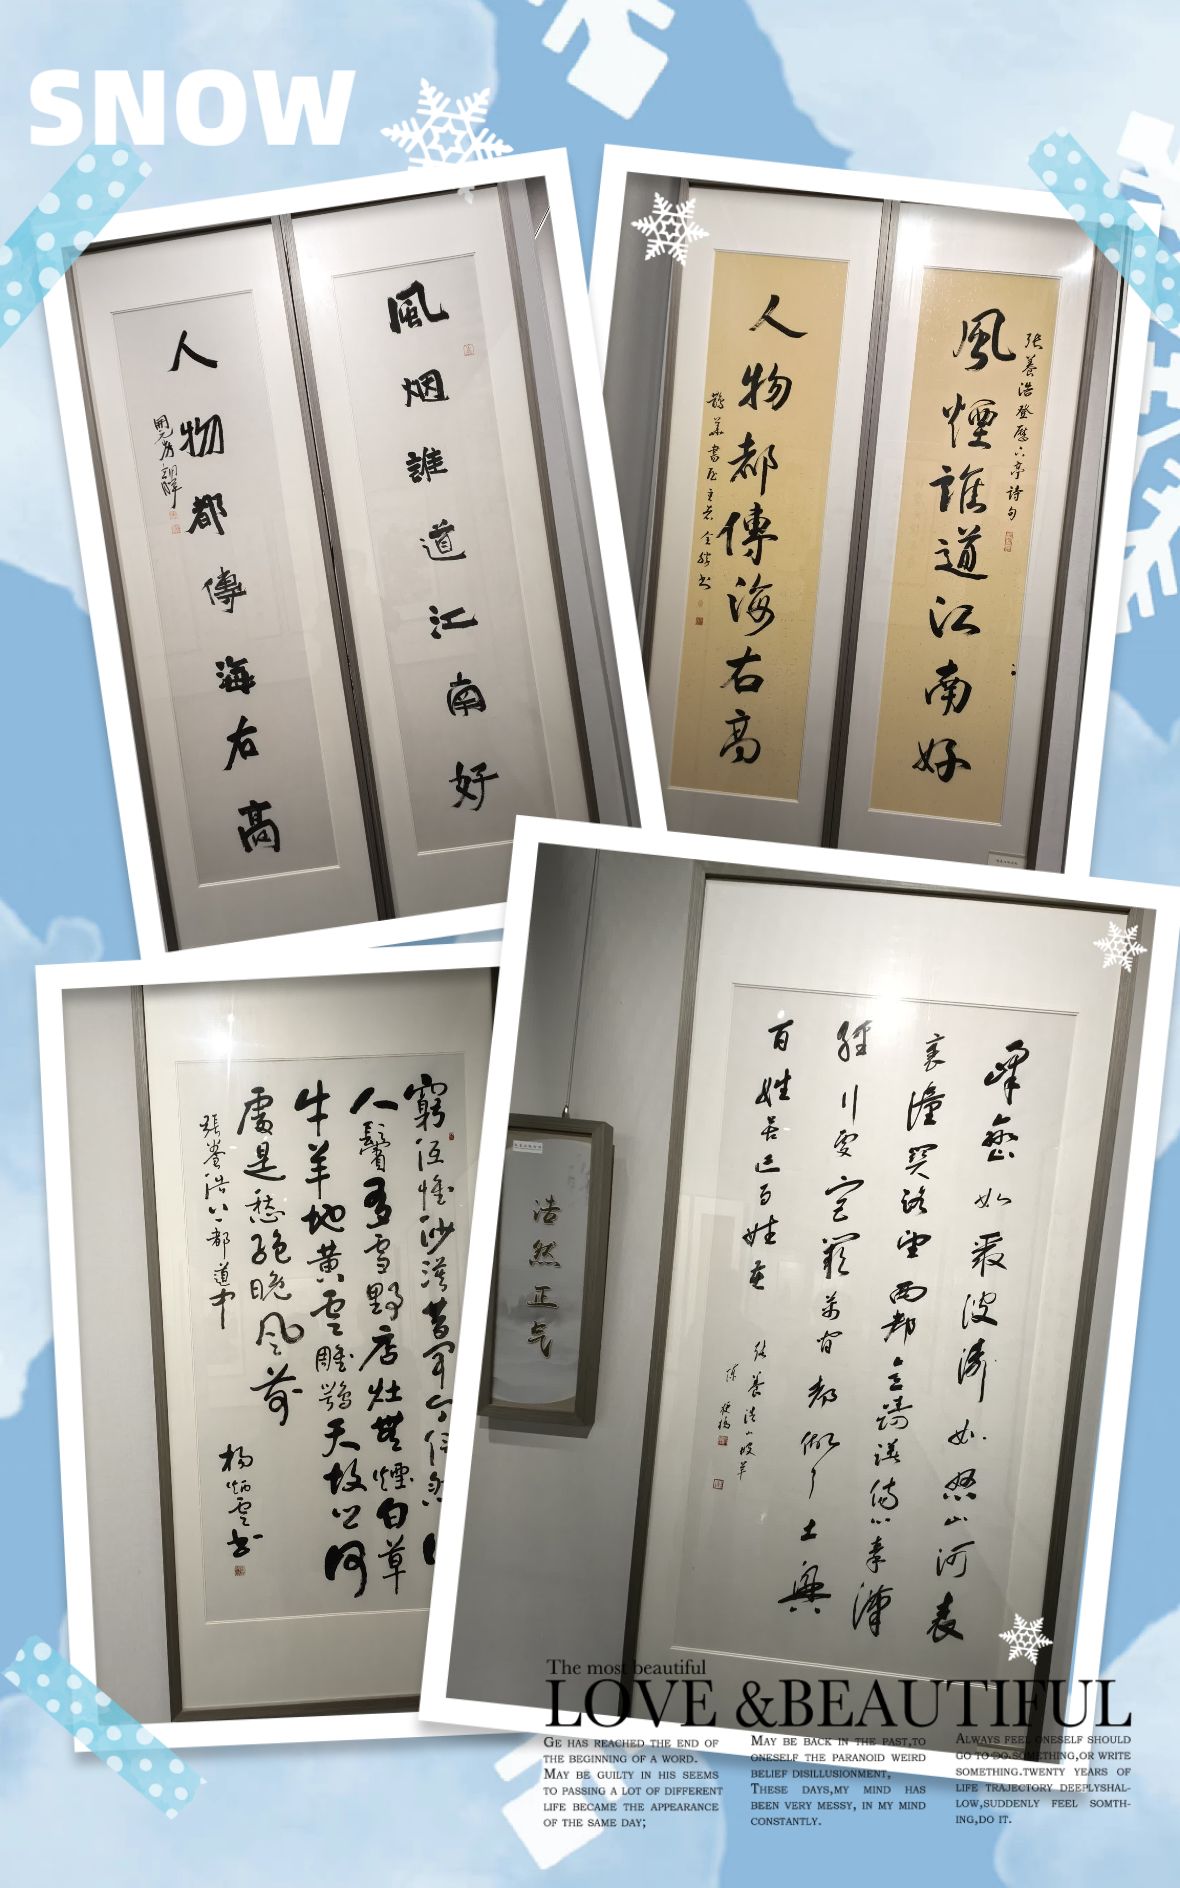 SNOW
風烟誰道江南好
人物都傳海右高
张養浩登歷下亭詩句
風煙誰道江南好
人物都傳海右高
窮徼惟沙漠昔聞今信然
人鬢有雪野店灶無煙白草
牛羊地黃雲雕鶚天故鄉何
處是愁絕晚風前
張養浩上都道中
楊炳雲书
浩然正气
峯巒如聚波濤如怒山河表
裏潼関路望西都意躊躇傷心秦漢
經行處宮闕萬間都做了土興
百姓苦亡百姓苦
张養浩山坡羊
The most beautiful
LOVE &BEAUTIFUL
GE HAS REACHED THE END OF
THE BEGINNING OF A WORD.
MAY BE GUILTY IN HIS SEEMS
TO PASSING A LOT OF DIFFERENT
LIFE BECAME THE APPEARANCE
OF THE SAME DAY;
MAY BE BACK IN THE PAST,TO
ONESELF THE PARANOID WEIRD
BELIEF DISILLUSIONMENT,
THESE DAYS,MY MIND HAS
BEEN VERY MESSY, IN MY MIND
CONSTANTLY.
ALWAYS FEEL ONESELF SHOULD
GO TO DO SOMETHING,OR WRITE
SOMETHING.TWENTY YEARS OF
LIFE TRAJECTORY DEEPLYSHAL-
LOW,SUDDENLY FEEL SOMTH-
ING,DO IT.